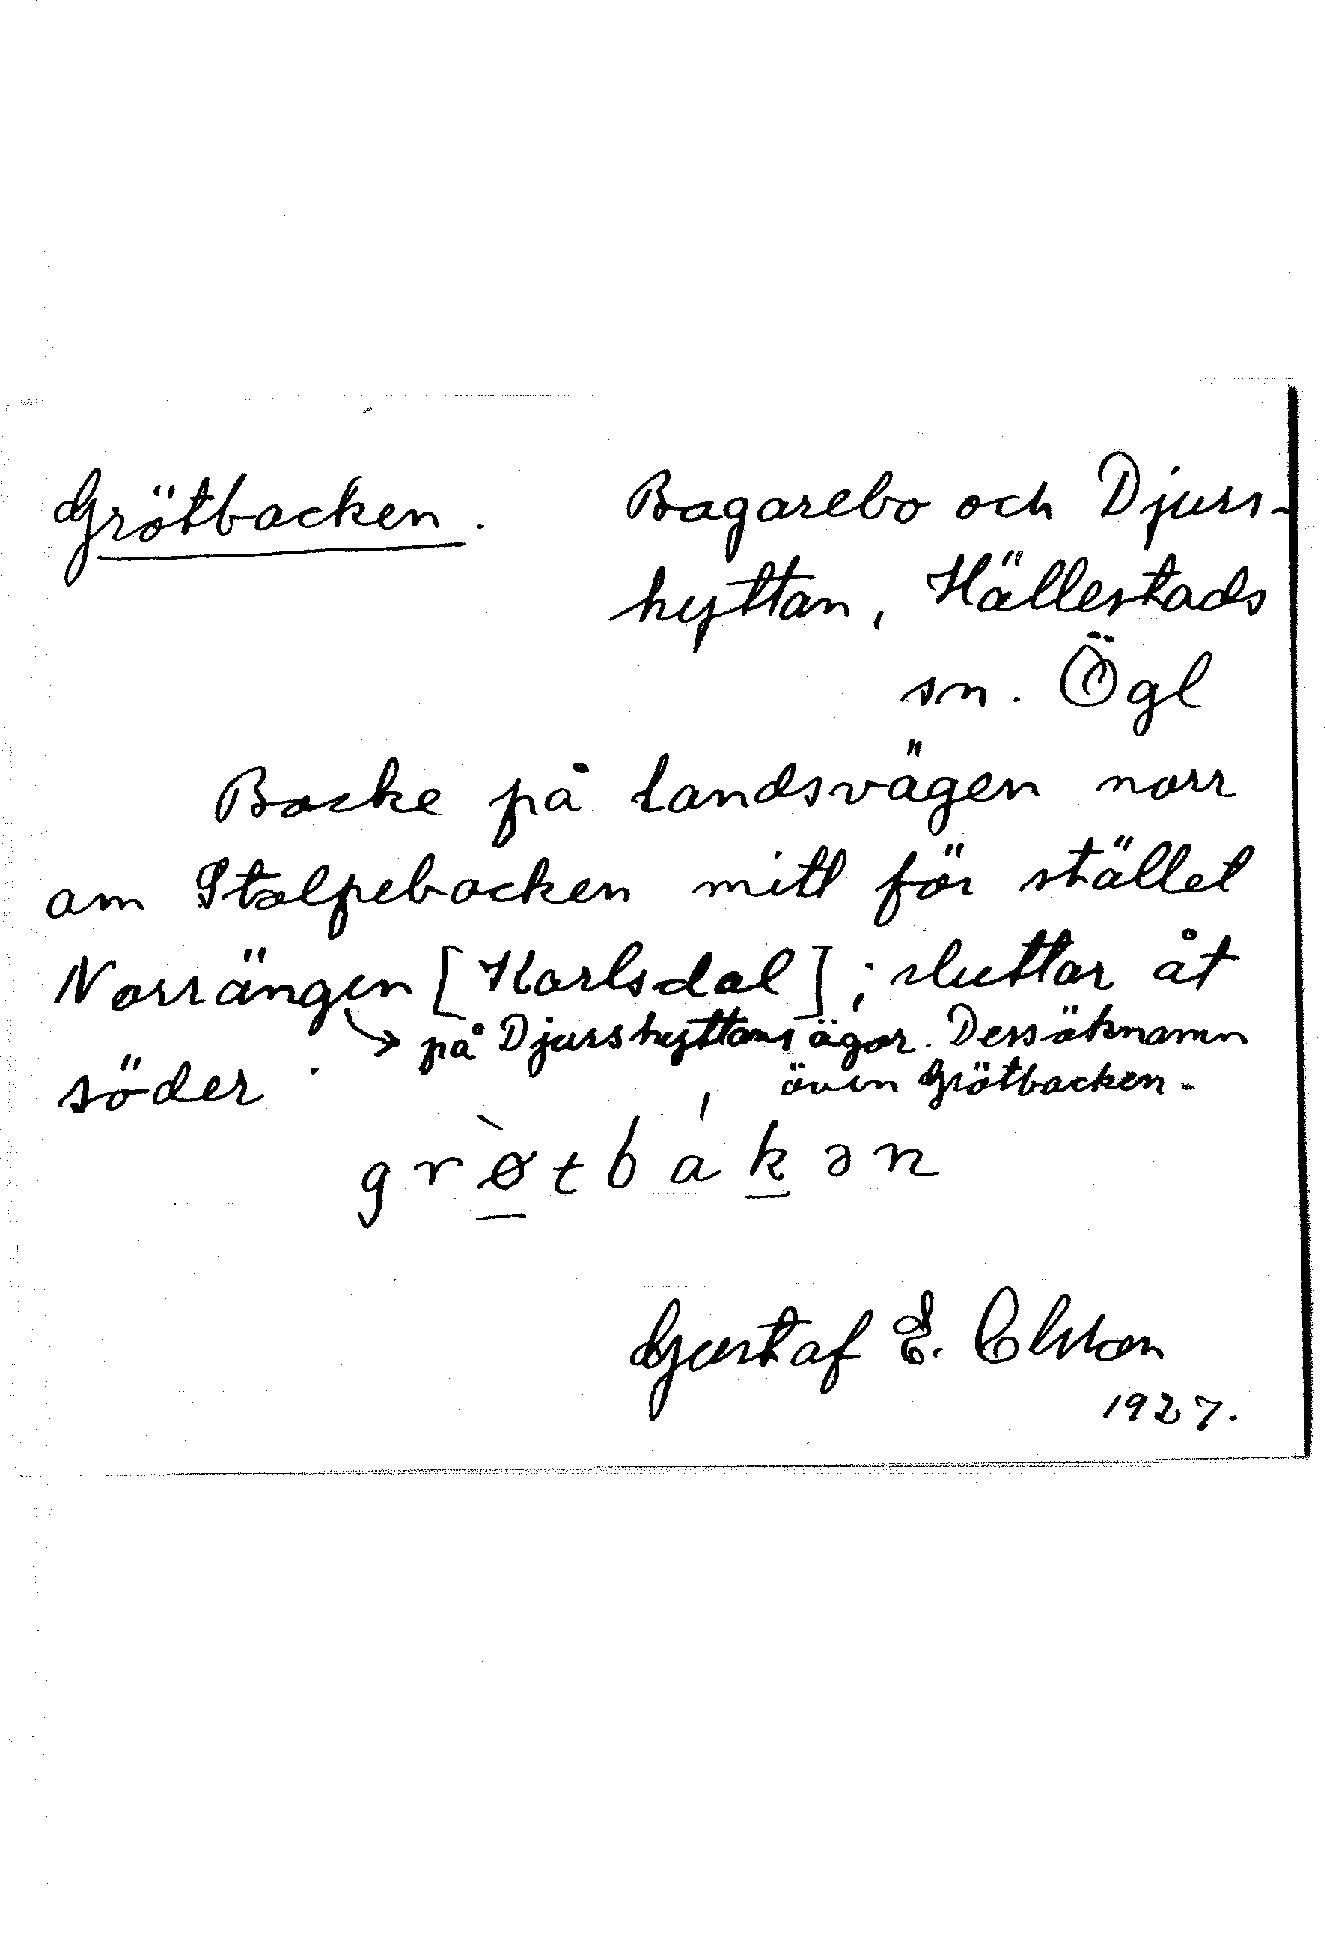 Grötbacken.
Bagarebo och Djurs-
hyttan, Hällestads
sn. Ögl
Backe på landsvägen norr
om Stolpebacken mitt för stället
Norrängen [Karlsdal]; sluttar åt
på Djurshyttans ägor. Dess öknamn
även Grötbacken.
söder.
grø̀tbákən
Gustaf E. Olsson
1927.